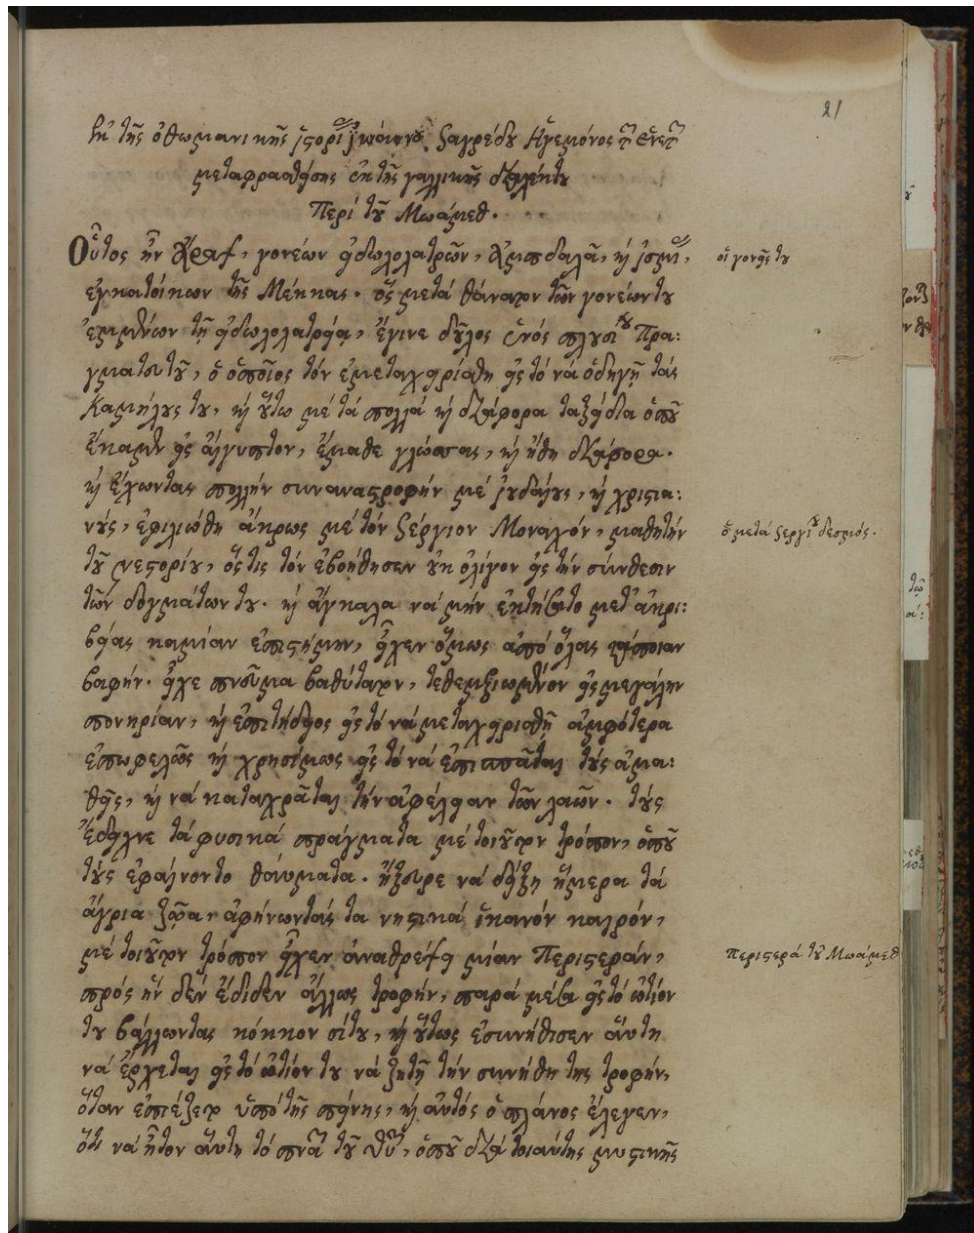 21
ἐκ τῆς ὀθωμανικῆς ἱστορίας Ἰωάννου Σαγρέδου Ἡγεμόνος τῶν Ἐνετῶν
μεταφρασθείσης ἐκ τῆς γαλλικῆς διαλέκτου
Περί τοῦ Μωάμεθ.
Οὗτος ἦν Ἄραψ, γονέων εἰδωλολατρῶν, καὶ
οἱ γονεῖς του
ἐγκατοίκων τῆς Μέκκας. ὅς μετά θάνατον τῶν γονέων του
ἐμμένων τῇ εἰδωλολατρείᾳ, ἔγινε δοῦλος ἑνός πλουσίου Πρα:
γματευτοῦ, ὁ ὁποῖος τόν ἐμεταχειρίσθη εἰς τό νά ὁδηγῇ τάς
Καμήλους του, καὶ οὕτω μέ τά πολλά καὶ διάφορα ταξείδια ὁποῦ
ἔκαμεν εἰς αἴγυπτον, ἔμαθε γλώσσας, καὶ ἤθη διάφορα.
καὶ ἔχωντας πολλήν συναναστροφήν μέ ἰουδαίους, καὶ χριστια:
νούς, ἐφιλιώθη ἄκρως μέ τόν Σέργιον Μοναχόν, μαθητήν
ὁ μετά Σεργίου δεσμός.
τοῦ νεστορίου, ὅστις τόν ἐβοήθησεν οὐκ ὀλίγον εἰς τήν σύνθεσιν
τῶν δογμάτων του. καὶ ἀγκαλα νά μήν ἐκτήσατο μετ' ἀκρι:
βείας καμίαν ἐπιστήμην, εἶχεν ὅμως ἀπό ὅλας κάποιαν
βαφήν. εἶχε πνεῦμα βαθύτατον, τεθεμελιωμένον εἰς μεγάλην
πονηρίαν, καὶ ἐπιτήδειος εἰς τό νά μεταχειρισθῇ ἀμφότερα
ἐπωφελῶς καὶ χρησίμως εἰς τό νά ἐπισπᾶται τούς ἀμα:
θεῖς, καὶ νά καταχρᾶται τήν ἀφέλειαν τῶν λαῶν. τούς
ἔδειχνε τά φυσικά πράγματα μέ τοιοῦτον τρόπον, ὁποῦ
τούς ἐφαίνοντο θαύματα. ἤξευρε νά δείξῃ ἥμερα τά
ἄγρια ζῷα ἀφήνωντάς τα νηστικά ἱκανόν καιρόν,
μέ τοιοῦτον τρόπον εἶχεν ἀναθρέψει μίαν Περιστεράν,
Περιστερά τοῦ Μωάμεθ
πρός ἥν δέν ἔδιδεν ἄλλως τροφήν, παρά μέσα εἰς τό ὠτίον
του βάλλωντας κόκκον σίτου, καὶ οὕτως ἐσυνήθισεν αὕτη
νά ἔρχεται εἰς τό ὠτίον του νά ζητῇ τήν συνήθη της τροφήν,
ὅταν ἐπιέζετο ὑπό τῆς πείνης, καὶ αὐτός ὁ πλάνος ἔλεγεν,
ὅτι νά ἦτον αὕτη τό πνᾶ τοῦ θῦ, ὁποῦ διά τοιαύτης μυστικῆς